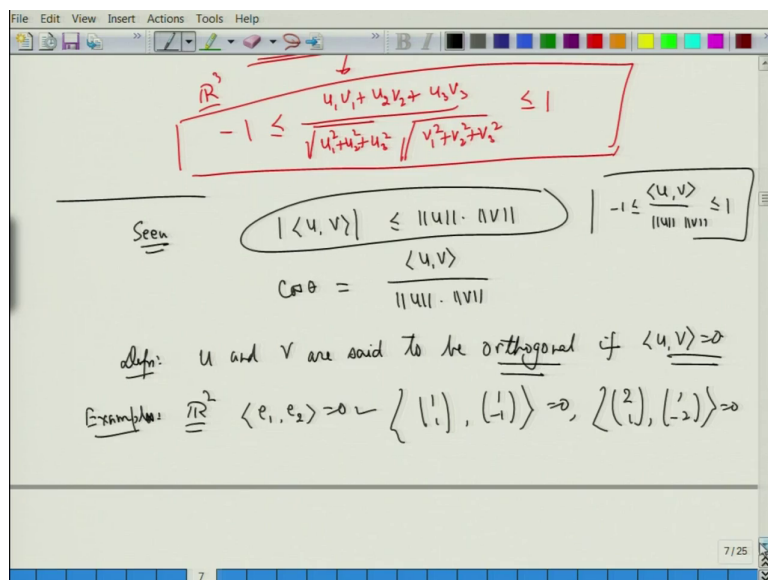 File Edit View Insert Actions Tools Help
ℝ³
-1 ≤ (u₁v₁ + u₂v₂ + u₃v₃) / (√(u₁²+u₂²+u₃²) √(v₁²+v₂²+v₃²)) ≤ 1
Seen |⟨u,v⟩| ≤ ||u||·||v|| -1 ≤ ⟨u,v⟩ / (||u|| ||v||) ≤ 1
Cos θ = ⟨u,v⟩ / (||u||·||v||)
Defn: u and v are said to be orthogonal if ⟨u,v⟩=0
Examples: ℝ² ⟨e₁,e₂⟩=0 ⟨(1 1), (1 -1)⟩ =0, ⟨(2 1), (1 -2)⟩=0
7/25
7